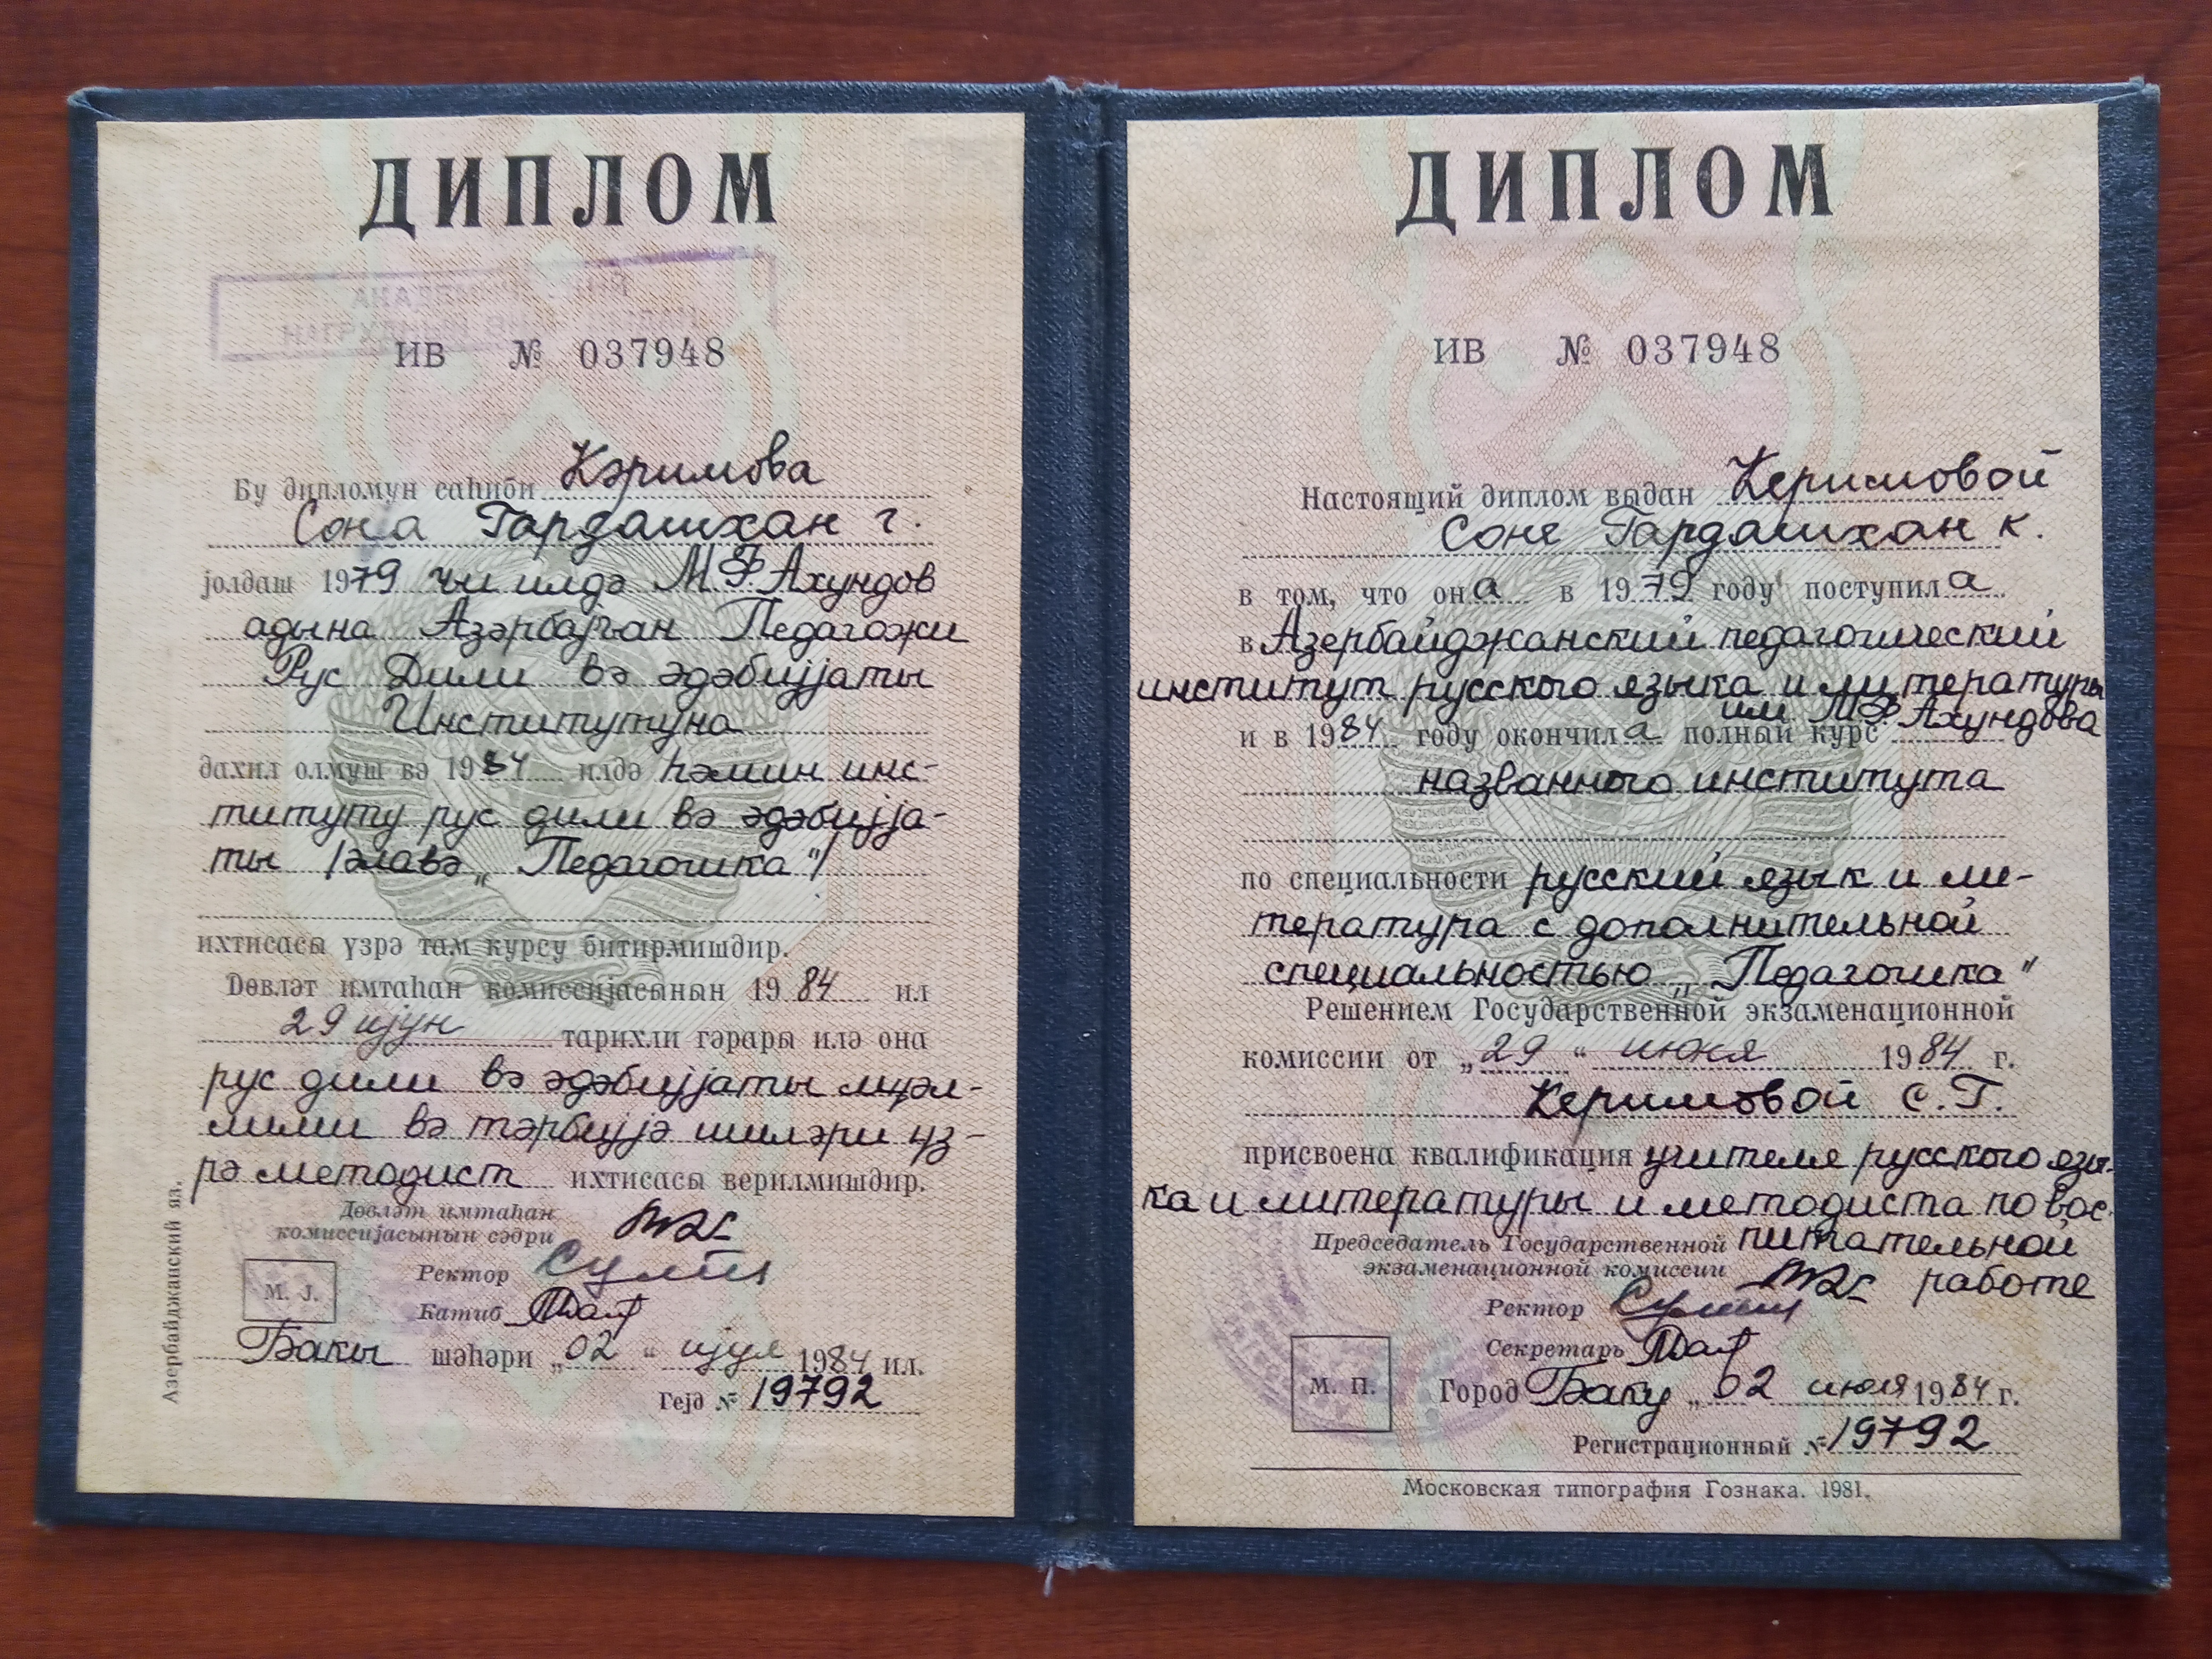 ДИПЛОМ
АКАДЕМИЧЕСКИЙ
НАГРУДНЫЙ ЗНАК ВЫДАН
ИВ № 037948
Бу дипломун саһиби Кәримова
Сона Гардашхан г.
јолдаш 1979 чи илдә М.Ф.Ахундов
адына Азәрбајҹан Педагожи
Рус Дили вә әдәбијјаты
Институтуна
дахил олмуш вә 1984 илдә һәмин инс-
титуту рус дили вә әдәбијја-
ты /әлавә „Педагогика"/
ихтисасы үзрә там курсу битирмишдир.
Дөвләт имтаһан комиссијасынын 1984 ил
29 ијун тарихли гәрары илә она
рус дили вә әдәбијјаты мүәл-
лими вә тәрбијјә ишләри үз-
рә методист ихтисасы верилмишдир.
Дөвләт имтаһан
комиссијасынын сәдри
Ректор
М. Ј.
Катиб
Бакы шәһәри „02" ијул 1984 ил.
Гејд № 19792
Азербайджанский яз.
ДИПЛОМ
ИВ № 037948
Настоящий диплом выдан Керимовой
Соне Гардашхан к.
в том, что она в 1979 году поступила
в Азербайджанский педагогический
институт русского языка и литературы
им М.Ф.Ахундова
и в 1984 году окончила полный курс
названного института
по специальности русский язык и ли-
тература с дополнительной
специальностью „Педагогика"
Решением Государственной экзаменационной
комиссии от „29" июня 1984 г.
Керимовой С.Г.
присвоена квалификация учителя русского язы-
ка и литературы и методиста по вос-
питательной
работе
Председатель Государственной
экзаменационной комиссии
Ректор
Секретарь
М. П.
Город Баку „02 июля 1984 г.
Регистрационный № 19792
Московская типография Гознака. 1981.